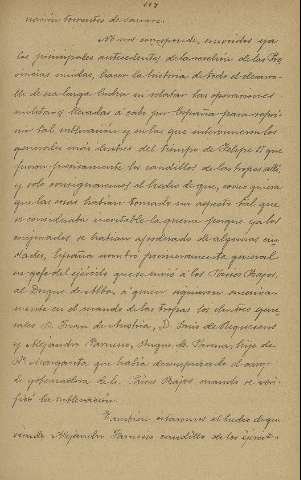 117
nación torrentes de sangre.
No nos corresponde, conocidos ya
los principales antecedentes de la rebelión de las Pro
vincias unidas, hacer la historia de todo el desarro-
llo de su larga lucha ni relatar las operaciones
militares llevadas a cabo por España para repri-
mir tal sublevación y en las que intervinieron los
generales más ilustres del tiempo de Felipe II que
fueron precisamente los caudillos de las tropas
y solo consignaremos el hecho de que, como quiera
que las cosas habían tomado un aspecto tal que
se consideraba inevitable la guerra porque ya los
se habían apoderado de algunas ciu-
dades, España nombró primeramente general
en jefe del ejército que se envió a los Países Bajos,
al Duque de Alba, a quien siguieron sucesiva-
mente en el mando de las tropas los ilustres gene-
rales D. Juan de Austria, D. Luis de Requesens
y Alejandro Farnesio, Duque de Parma, hijo de
Dª Margarita que había desempeñado el cargo
de gobernadora de los Países Bajos cuando se veri-
ficó la sublevación.
También citaremos el hecho de que
siendo Alejandro Farnesio caudillo de los ejérci-